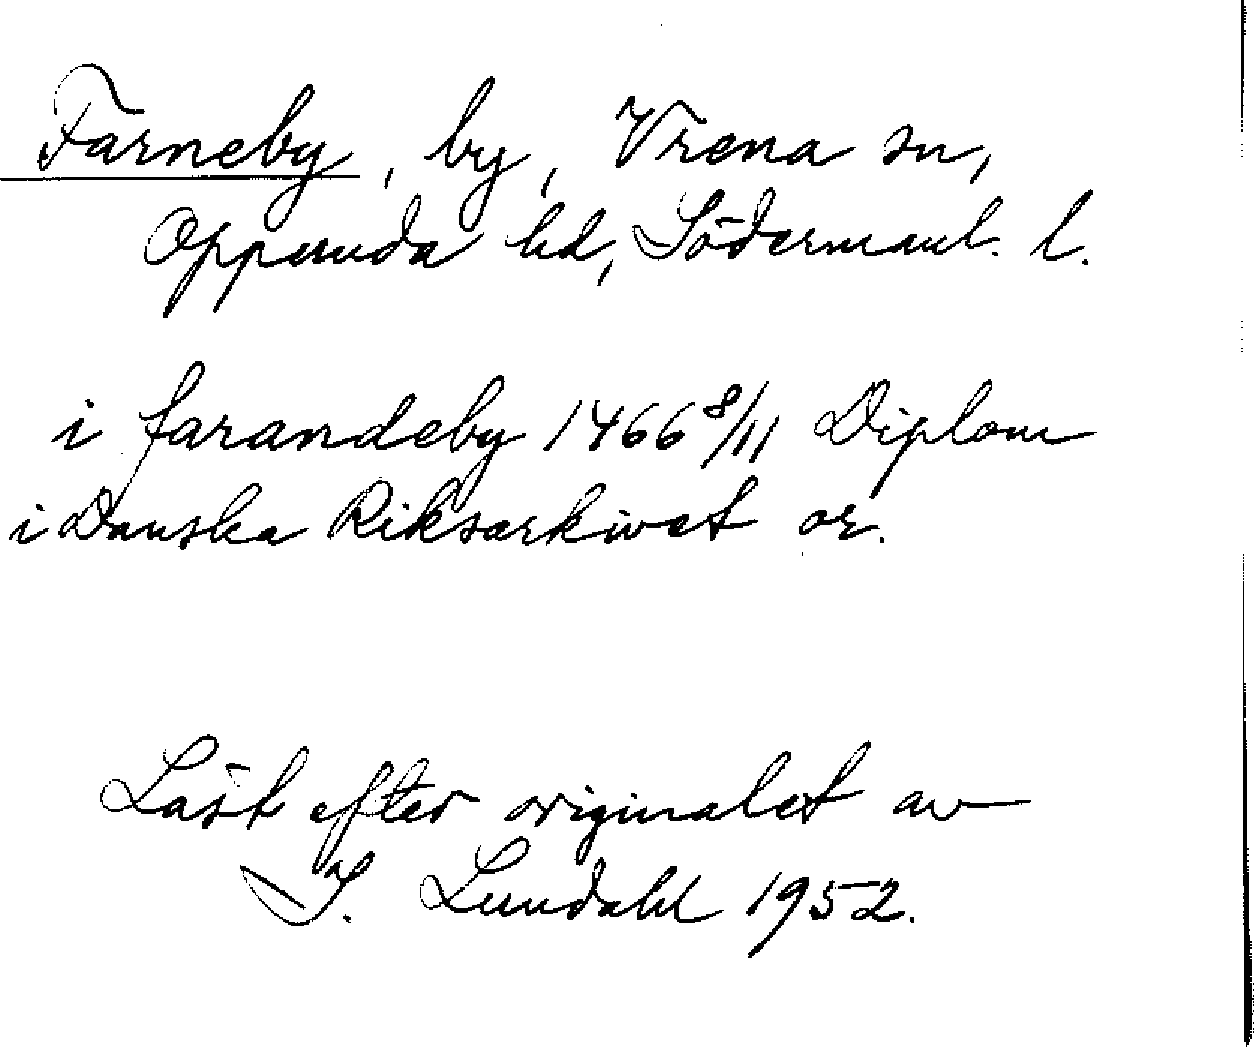 Farneby, by, Vrena sn,
Oppunda hd, Södermanl. l.
i farandeby 1466 8/11 Diplom
i Danska Riksarkivet or.
Läst efter originalet av
I. Lundahl 1952.